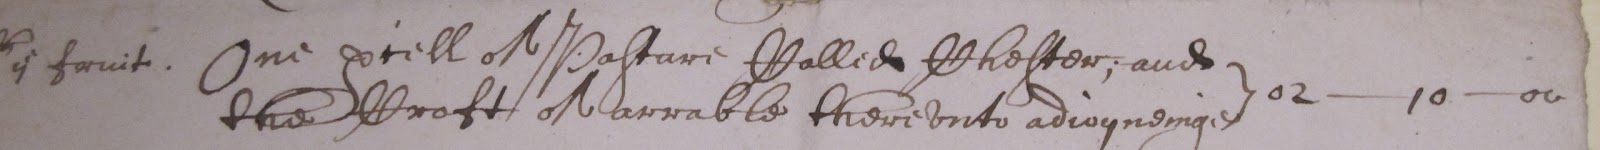 ij fruit. One pcell of Pasture Called Chester; and
the Croft of arrable therevnto adioyneinge } 02 — 10 — 00